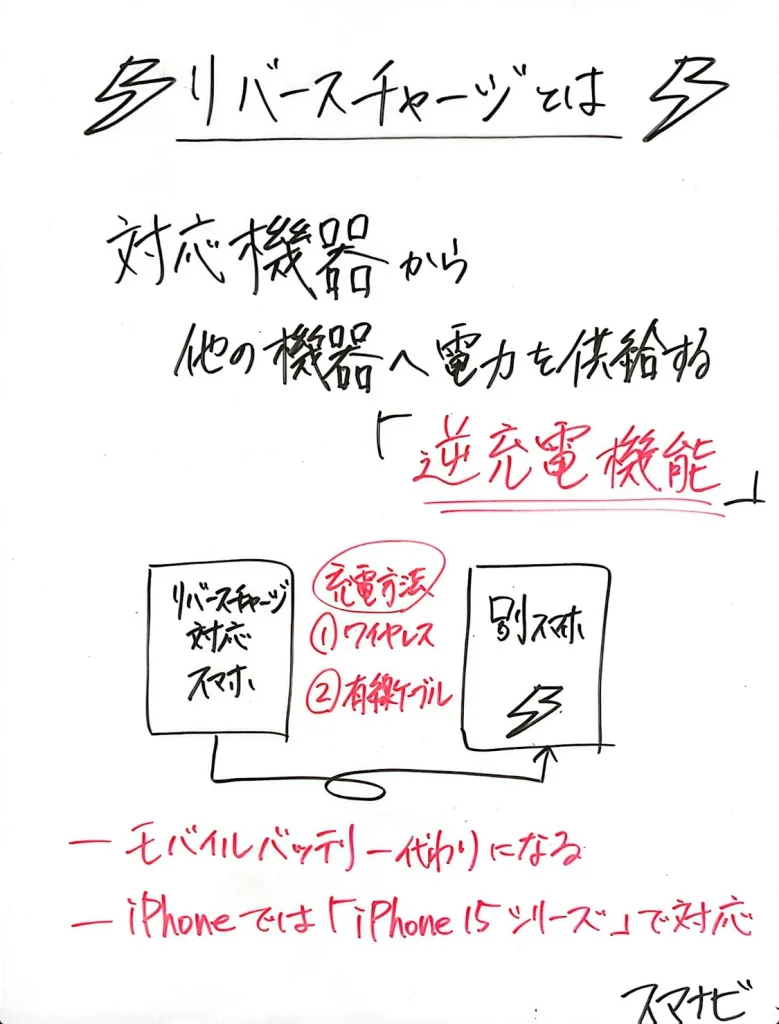 リバースチャージとは
対応機器から
他の機器へ電力を供給する
「逆充電機能」
リバースチャージ
対応
スマホ
充電方法
①ワイヤレス
②有線ケーブル
別スマホ
ー モバイルバッテリー代わりになる
ー iPhoneでは「iPhone 15 シリーズ」で対応
スマナビ